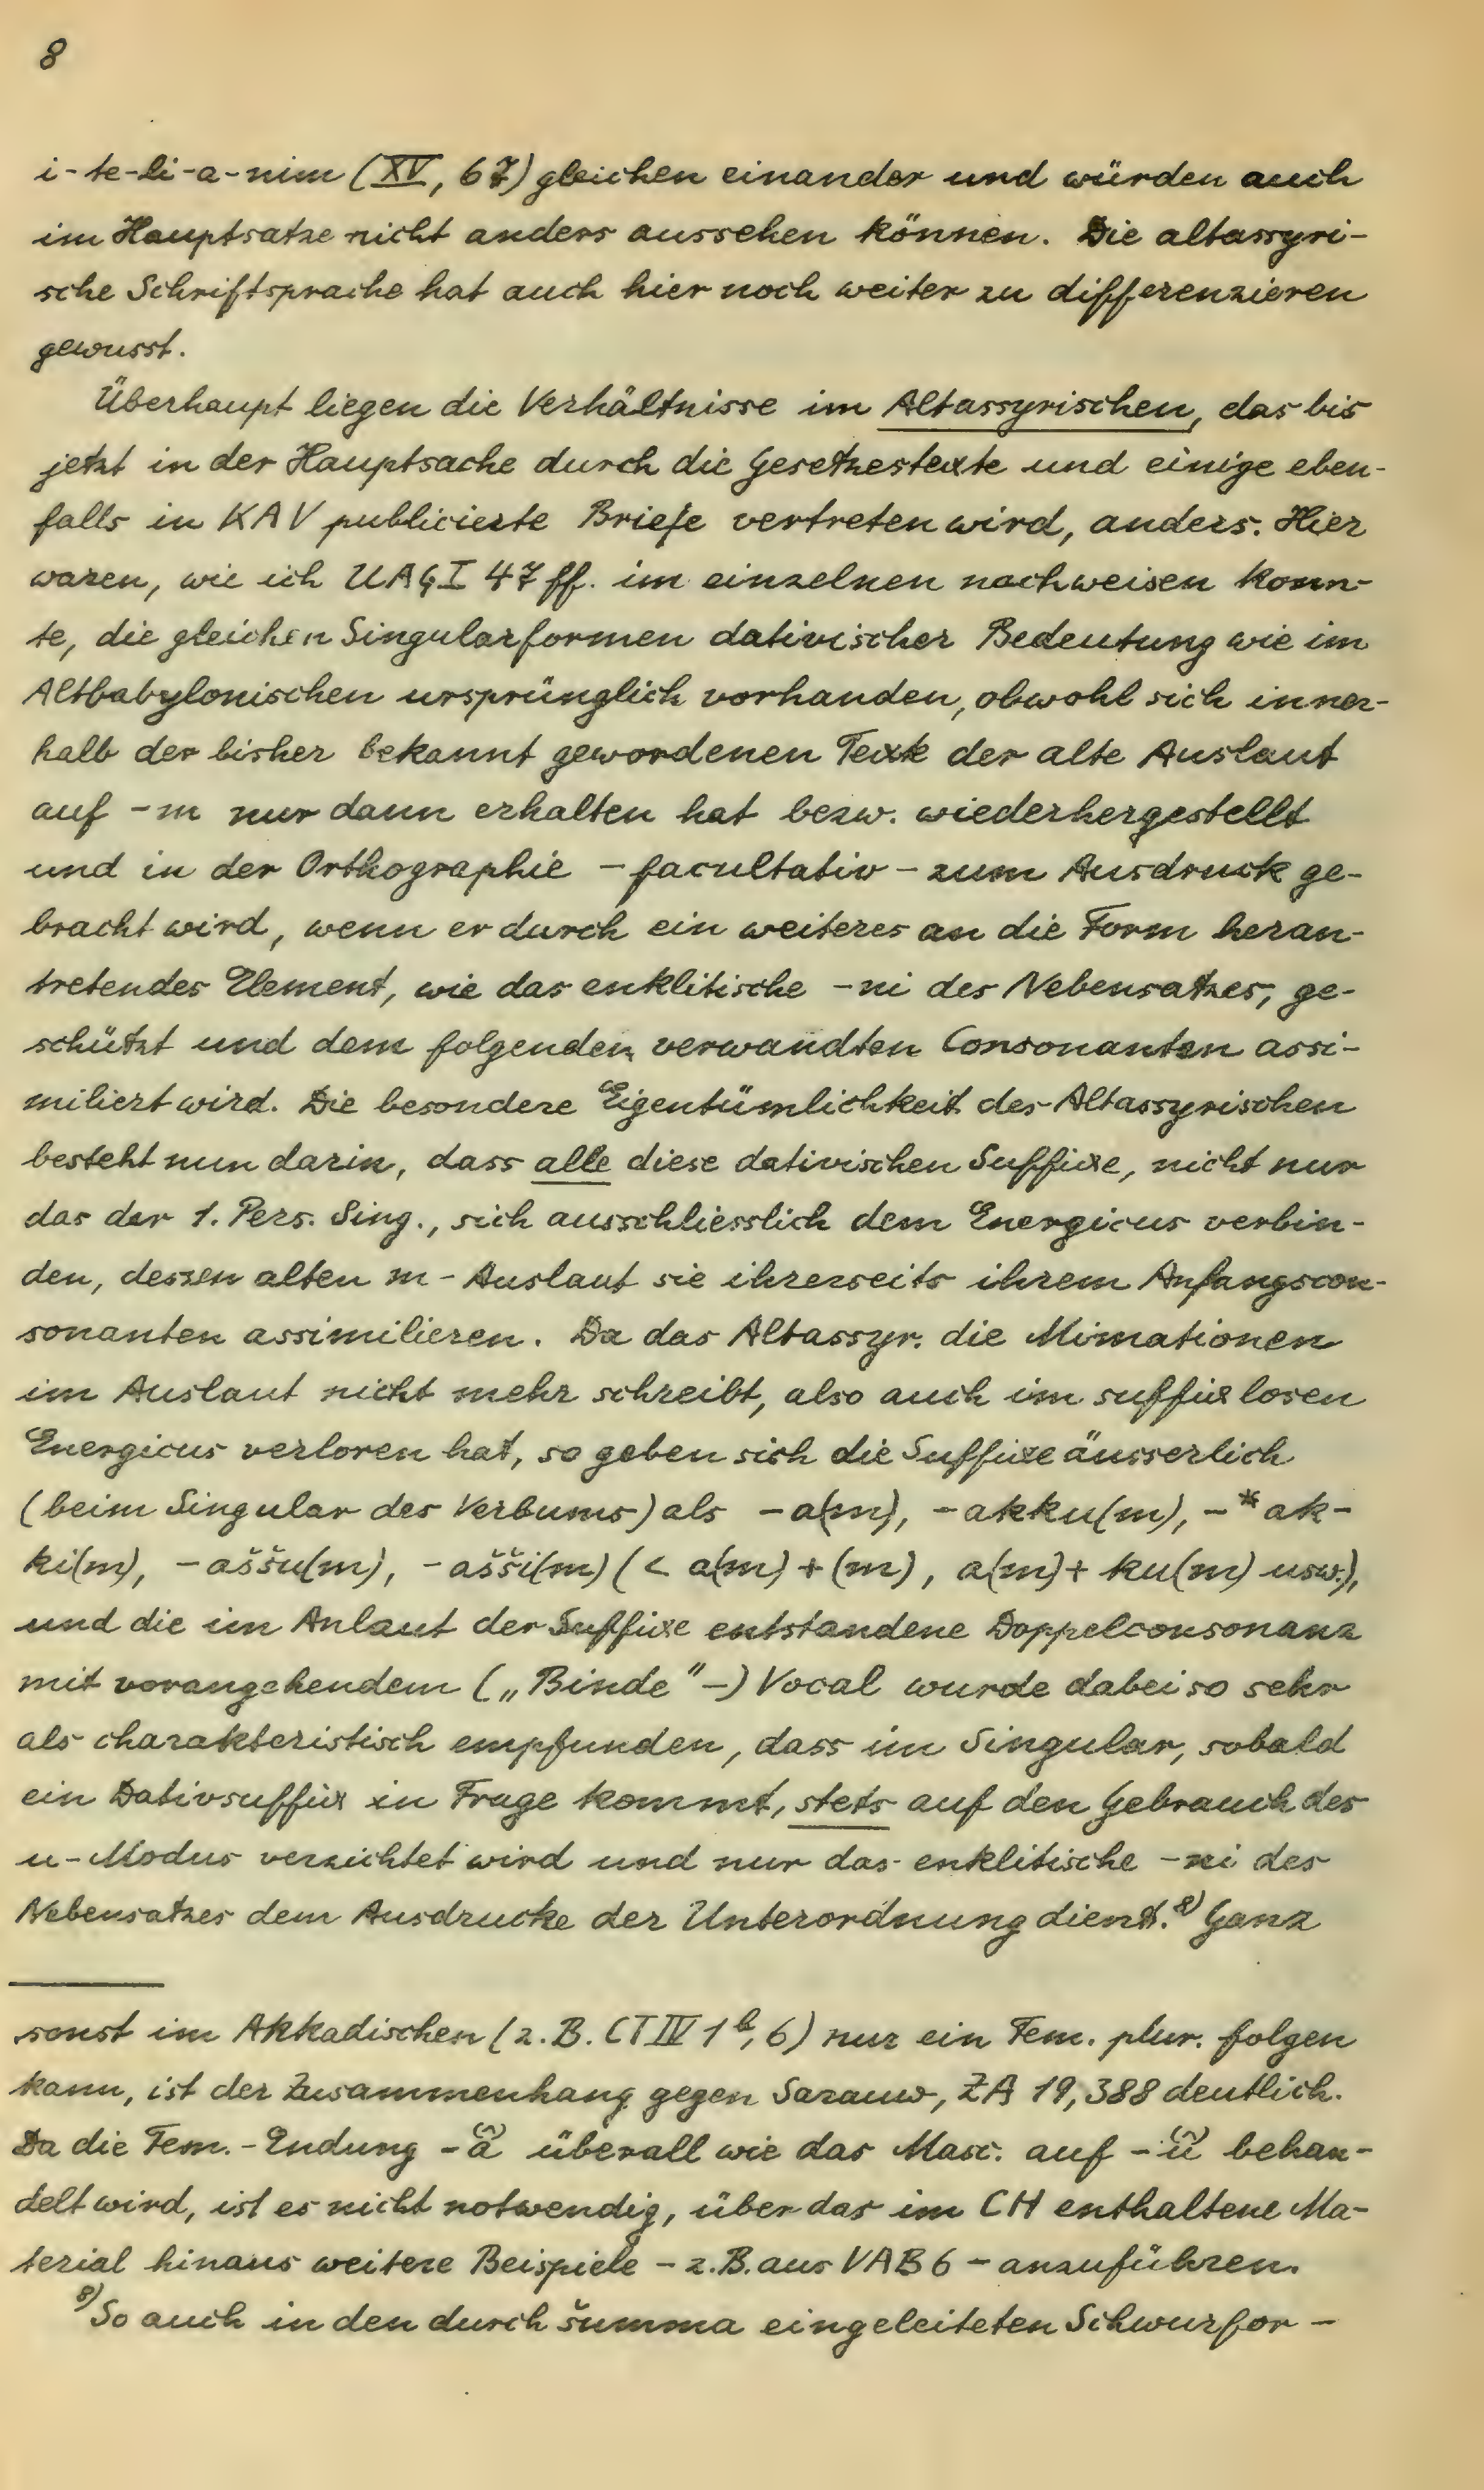 8
i-te-li-a-nim (XV, 67) gleichen einander und würden auch
im Hauptsatze nicht anders aussehen können. Die altassyri-
sche Schriftsprache hat auch hier noch weiter zu differenzieren
gewusst.
Überhaupt liegen die Verhältnisse im Altassyrischen, das bis
jetzt in der Hauptsache durch die Gesetzestexte und einige eben-
falls in KAV publicierte Briefe vertreten wird, anders. Hier
waren, wie ich UAG I 47 ff. im einzelnen nachweisen konn-
te, die gleichen Singularformen dativischer Bedeutung wie im
Altbabylonischen ursprünglich vorhanden, obwohl sich inner-
halb der bisher bekannt gewordenen Texte der alte Auslaut
auf -m nur dann erhalten hat bezw. wiederhergestellt
und in der Orthographie - facultativ - zum Ausdruck ge-
bracht wird, wenn er durch ein weiteres an die Form heran-
tretendes Element, wie das enklitische -ni des Nebensatzes, ge-
schützt und dem folgenden verwandten Consonanten assi-
miliert wird. Die besondere Eigentümlichkeit des Altassyrischen
besteht nun darin, dass alle diese dativischen Suffixe, nicht nur
das der 1. Pers. Sing., sich ausschliesslich dem Energicus verbin-
den, dessen alten m-Auslaut sie ihrerseits ihrem Anfangscon-
sonanten assimilieren. Da das Altassyr. die Mimationen
im Auslaut nicht mehr schreibt, also auch im suffixlosen
Energicus verloren hat, so geben sich die Suffixe äusserlich
(beim Singular des Verbums) als -a(m), -akku(m), -*ak-
ki(m), -aššu(m), -ašši(m) (< a(m) + (m), a(m) + ku(m) usw.),
und die im Anlaut der Suffixe entstandene Doppelconsonanz
mit vorangehendem („Binde"-) Vocal wurde dabei so sehr
als charakteristisch empfunden, dass im Singular, sobald
ein Dativsuffix in Frage kommt, stets auf den Gebrauch des
u-Modus verzichtet wird und nur das enklitische -ni des
Nebensatzes dem Ausdrucke der Unterordnung dient.⁸⁾ Ganz
sonst im Akkadischen (z. B. CT IV 1ᵇ, 6) nur ein Fem. plur. folgen
kann, ist der Zusammenhang gegen Sarauw, ZA 19, 388 deutlich.
Da die Fem.-Endung -ā̆ überall wie das Masc. auf -ū̆ behan-
delt wird, ist es nicht notwendig, über das im CH enthaltene Ma-
terial hinaus weitere Beispiele - z. B. aus VAB 6 - anzuführen.
⁸⁾ So auch in den durch šumma eingeleiteten Schwurfor-